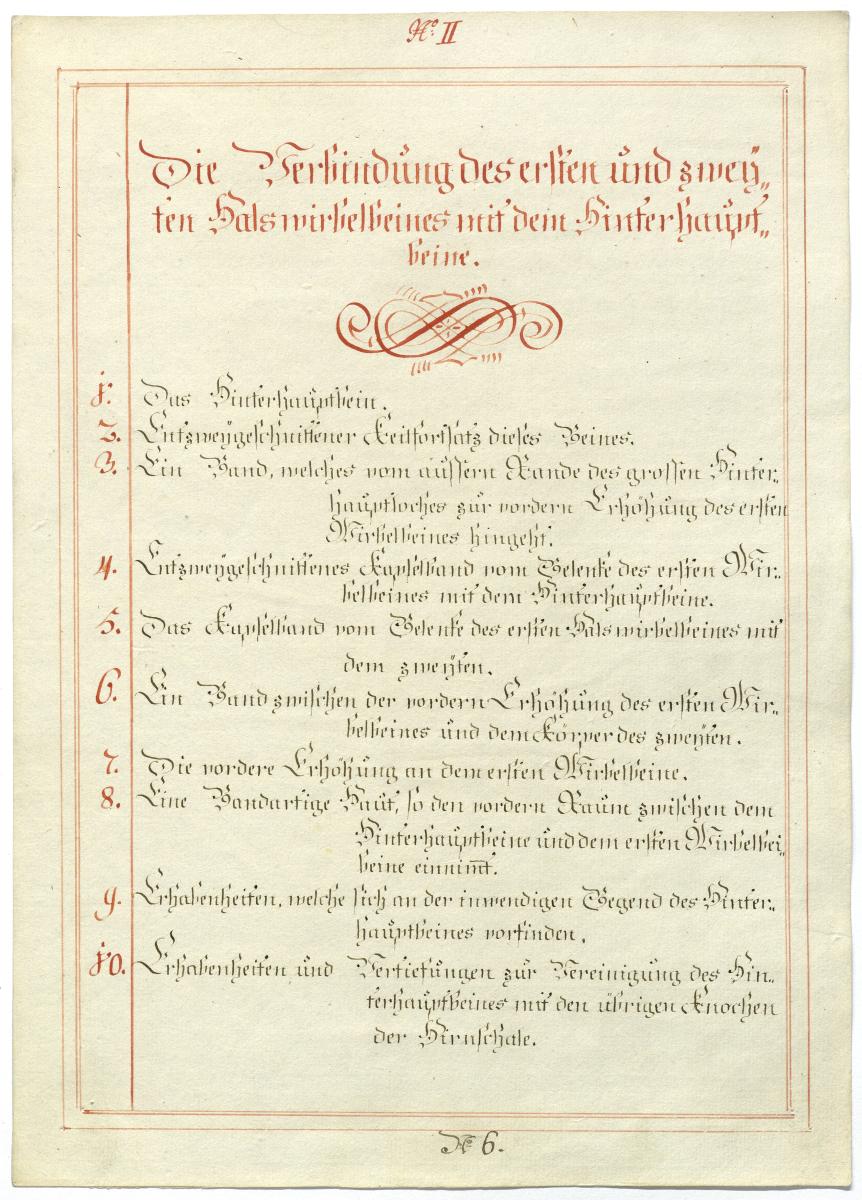 No. II
Die Verbindung des ersten und zwey„
ten Halswirbelbeines mit dem Hinterhaupt„
beine.
1. Das Hinterhauptbein.
2. Entzweygeschnittener Keilfortsatz dieses Beines.
3. Ein Band, welches vom äussern Rande des grossen Hinter„
hauptloches zur vordern Erhöhung des ersten
Wirbelbeines hingeht.
4. Entzweygeschnittenes Kapselband vom Gelenke des ersten Wir„
belbeines mit dem Hinterhauptbeine.
5. Das Kapselband vom Gelenke des ersten Halswirbelbeines mit
dem zweyten.
6. Ein Band zwischen der vordern Erhöhung des ersten Wir„
belbeines und dem Körper des zweyten.
7. Die vordere Erhöhung an dem ersten Wirbelbeine.
8. Eine Bandartige Haut, so den vordern Raum zwischen dem
Hinterhauptbeine und dem ersten Wirbelbei„
beine einnim̄t.
9. Erhabenheiten, welche sich an der inwendigen Gegend des Hinter„
hauptbeines vorfinden.
10. Erhabenheiten und Vertiefungen zur Vereinigung des Hin„
terhauptbeines mit den übrigen Knochen
der Hirnschale.
No. 6.